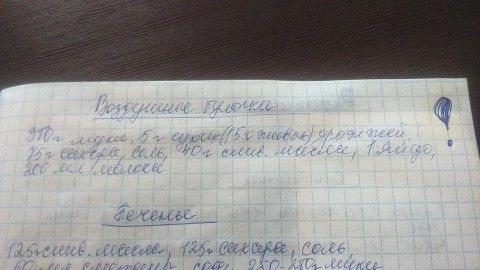 Воздушные булочки
350г муки, 5г сухих (15г живых) дрожжей,
75г сахара, соль, 40г слив. масла, 1 яйцо,
200 мл молока
Печенье
125г слив. масла, 125г сахара, соль
50 мл сметаны, сода, 250-270г муки